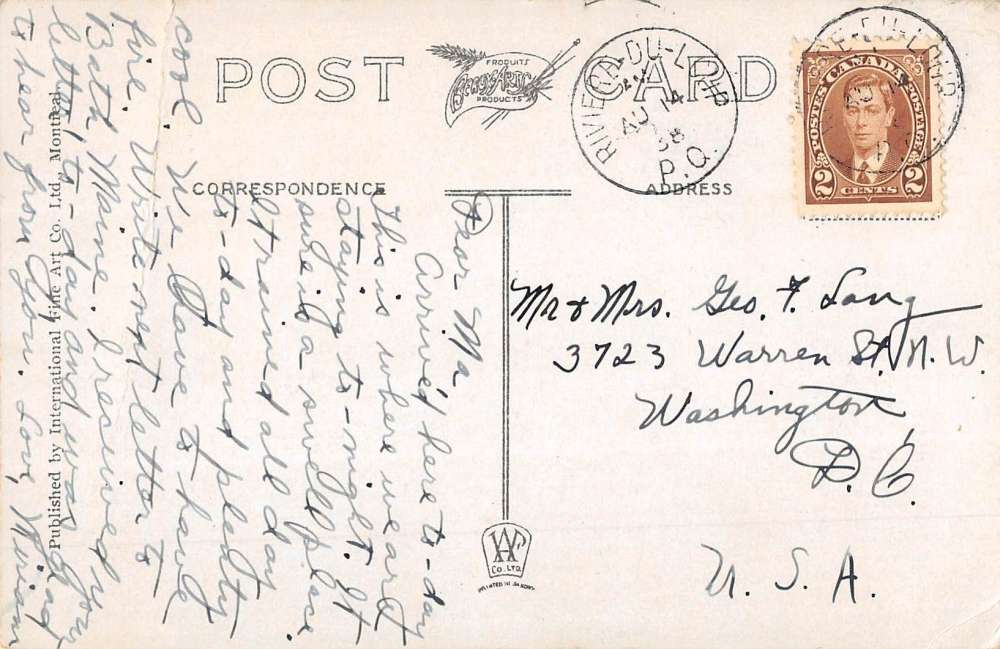 POST CARD
PRODUITS
PRODUCTS
RIVIERE-DU-LOUP
AU 14
38
P.Q.
POSTES CANADA POSTAGE
2 CENTS 2
CORRESPONDENCE
ADDRESS
Dear Ma,
Arrived here to-day
This is where we are
staying to-night. It
sure is a swell place
It rained all day
to-day and plenty
cool. We have to have
fire. Write next letter to
Bath, Maine. I received your
letter to-day and was glad
to hear from you. Love, Miriam
Mr & Mrs. Geo. F. Lang
3723 Warren St. N.W.
Washington
D.C.
U.S.A.
Published by International Fine Art Co. Ltd., Montreal
CO. LTD.
PRINTED IN SAXONY